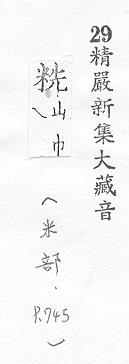 29精嚴新集大藏音
山巾
(米部.P.745)